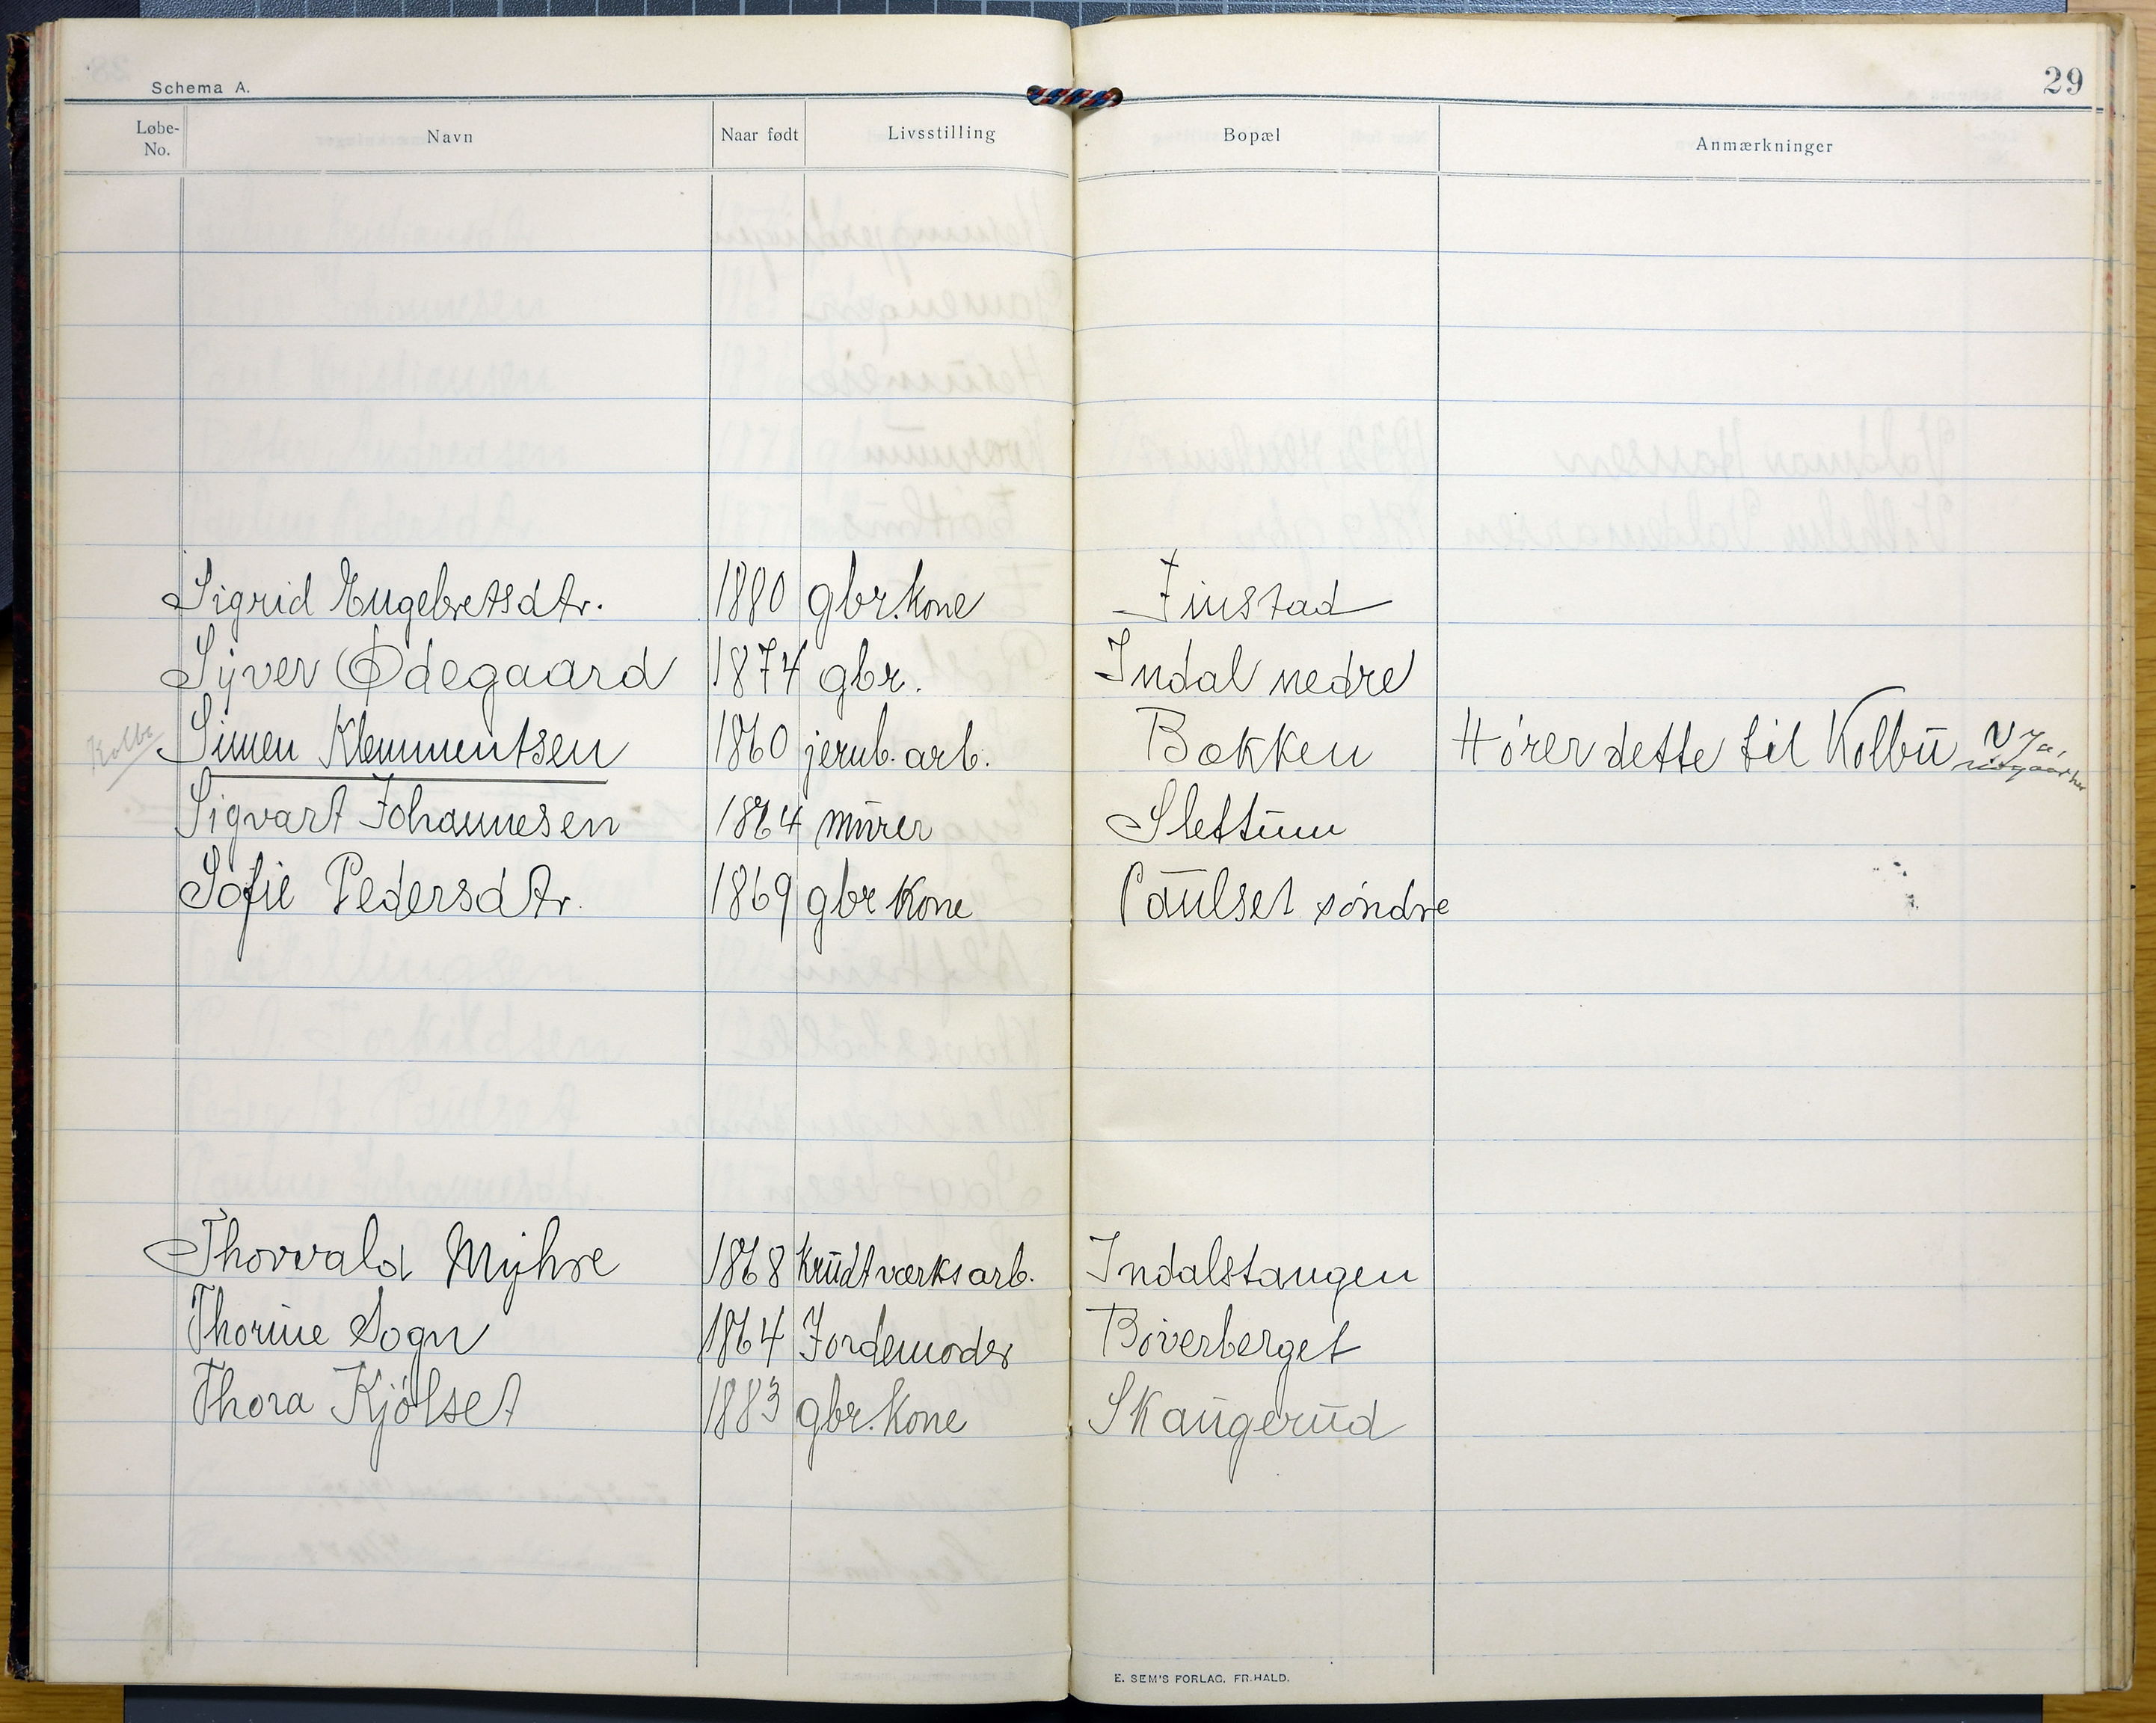 29
Schema A.
Løbe-No. Navn Naar født Livsstilling Bopæl Anmærkninger
Sigrid Engebretsdtr. 1880 gbr. kone Finstad
Syver Ødegaard 1874 gbr. Indal nedre
Kolbu Simen Klemmentsen 1860 jernb. arb. Bækken Hører dette til Kolbu Ja,
Sigvart Johannesen 1864 murer Slettum
Sofie Pedersdtr. 1869 gbr kone Paulset søndre
Thorvald Myhre 1868 Krudtværksarb. Indalstangen
Thorine Sogn 1864 Jordemoder Bøverberget
Thora Kjölset 1883 gbr. kone Skaugerud
E. SEM'S FORLAG, FR. HALD.